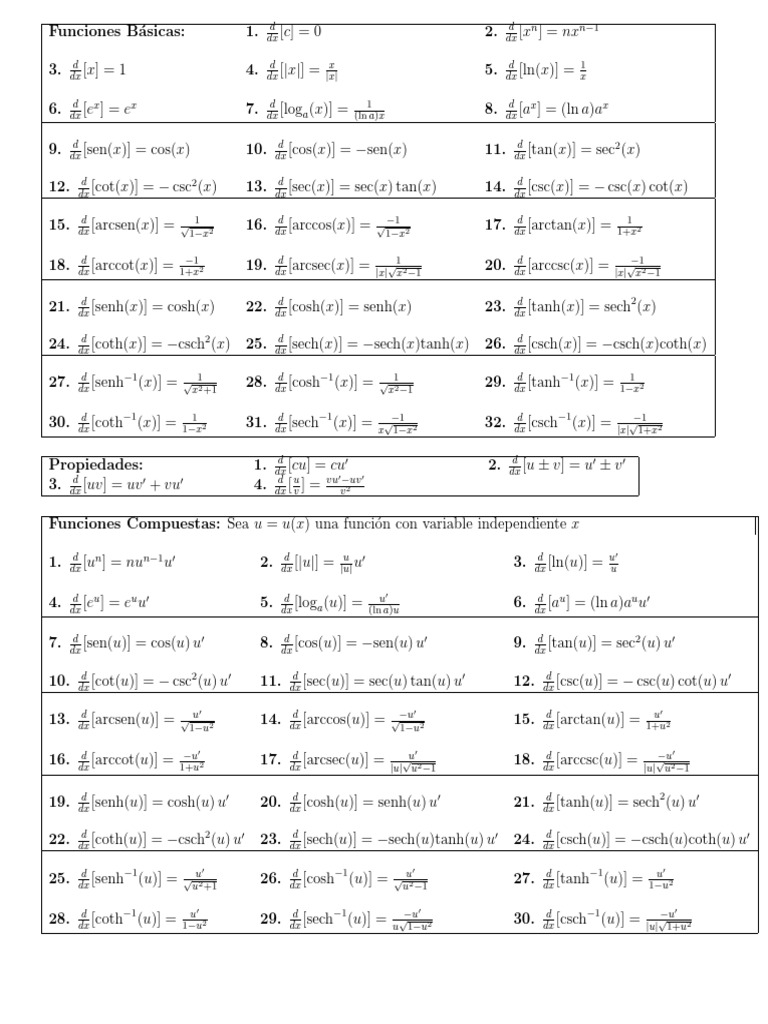 Funciones Básicas: 1. d/dx[c] = 0 2. d/dx[xⁿ] = nxⁿ⁻¹
3. d/dx[x] = 1 4. d/dx[|x|] = x/|x| 5. d/dx[ln(x)] = 1/x
6. d/dx[eˣ] = eˣ 7. d/dx[logₐ(x)] = 1/((ln a)x) 8. d/dx[aˣ] = (ln a)aˣ
9. d/dx[sen(x)] = cos(x) 10. d/dx[cos(x)] = −sen(x) 11. d/dx[tan(x)] = sec²(x)
12. d/dx[cot(x)] = − csc²(x) 13. d/dx[sec(x)] = sec(x) tan(x) 14. d/dx[csc(x)] = − csc(x) cot(x)
15. d/dx[arcsen(x)] = 1/√(1−x²) 16. d/dx[arccos(x)] = −1/√(1−x²) 17. d/dx[arctan(x)] = 1/(1+x²)
18. d/dx[arccot(x)] = −1/(1+x²) 19. d/dx[arcsec(x)] = 1/(|x|√(x²−1)) 20. d/dx[arccsc(x)] = −1/(|x|√(x²−1))
21. d/dx[senh(x)] = cosh(x) 22. d/dx[cosh(x)] = senh(x) 23. d/dx[tanh(x)] = sech²(x)
24. d/dx[coth(x)] = −csch²(x) 25. d/dx[sech(x)] = −sech(x)tanh(x) 26. d/dx[csch(x)] = −csch(x)coth(x)
27. d/dx[senh⁻¹(x)] = 1/√(x²+1) 28. d/dx[cosh⁻¹(x)] = 1/√(x²−1) 29. d/dx[tanh⁻¹(x)] = 1/(1−x²)
30. d/dx[coth⁻¹(x)] = 1/(1−x²) 31. d/dx[sech⁻¹(x)] = −1/(x√(1−x²)) 32. d/dx[csch⁻¹(x)] = −1/(|x|√(1+x²))
Propiedades: 1. d/dx[cu] = cu′ 2. d/dx[u ± v] = u′ ± v′
3. d/dx[uv] = uv′ + vu′ 4. d/dx[u/v] = (vu′−uv′)/v²
Funciones Compuestas: Sea u = u(x) una función con variable independiente x
1. d/dx[uⁿ] = nuⁿ⁻¹u′ 2. d/dx[|u|] = u/|u| u′ 3. d/dx[ln(u)] = u′/u
4. d/dx[eᵘ] = eᵘu′ 5. d/dx[logₐ(u)] = u′/((ln a)u) 6. d/dx[aᵘ] = (ln a)aᵘu′
7. d/dx[sen(u)] = cos(u) u′ 8. d/dx[cos(u)] = −sen(u) u′ 9. d/dx[tan(u)] = sec²(u) u′
10. d/dx[cot(u)] = − csc²(u) u′ 11. d/dx[sec(u)] = sec(u) tan(u) u′ 12. d/dx[csc(u)] = − csc(u) cot(u) u′
13. d/dx[arcsen(u)] = u′/√(1−u²) 14. d/dx[arccos(u)] = −u′/√(1−u²) 15. d/dx[arctan(u)] = u′/(1+u²)
16. d/dx[arccot(u)] = −u′/(1+u²) 17. d/dx[arcsec(u)] = u′/(|u|√(u²−1)) 18. d/dx[arccsc(u)] = −u′/(|u|√(u²−1))
19. d/dx[senh(u)] = cosh(u) u′ 20. d/dx[cosh(u)] = senh(u) u′ 21. d/dx[tanh(u)] = sech²(u) u′
22. d/dx[coth(u)] = −csch²(u) u′ 23. d/dx[sech(u)] = −sech(u)tanh(u) u′ 24. d/dx[csch(u)] = −csch(u)coth(u) u′
25. d/dx[senh⁻¹(u)] = u′/√(u²+1) 26. d/dx[cosh⁻¹(u)] = u′/√(u²−1) 27. d/dx[tanh⁻¹(u)] = u′/(1−u²)
28. d/dx[coth⁻¹(u)] = u′/(1−u²) 29. d/dx[sech⁻¹(u)] = −u′/(u√(1−u²)) 30. d/dx[csch⁻¹(u)] = −u′/(|u|√(1+u²))